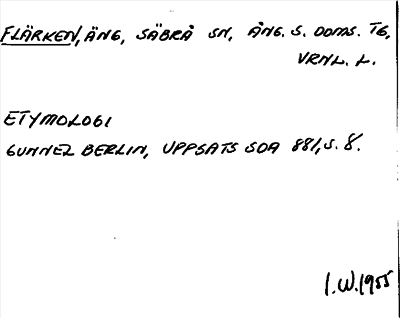 FLÄRKEN, ÄNG, SÄBRÅ SN, ÅNG. S. DOMS. TG,
VRNL. L.
ETYMOLOGI
GUNNEL BERLIN, UPPSATS SOA 881, S. 8.
I.W. 1955